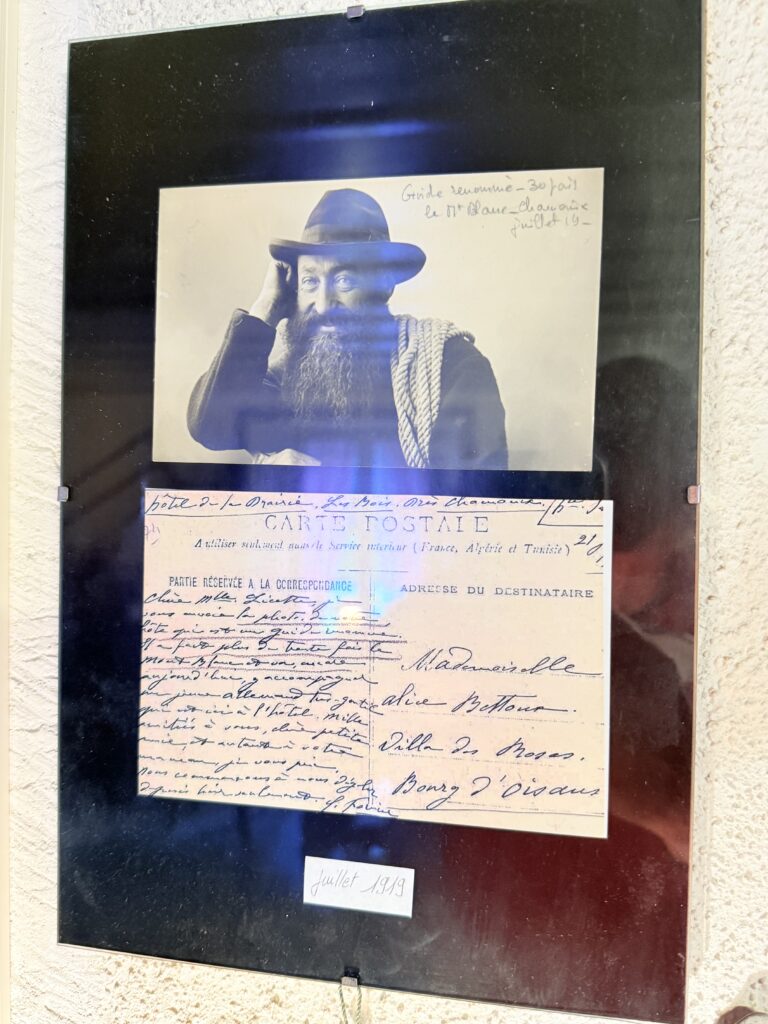 Guide renommé - 30 fois
le Mt Blanc - Chamonix
juillet 19 -
hôtel de la Prairie. Les Bois. Près Chamonix.
CARTE POSTALE
A utiliser seulement dans le Service intérieur (France, Algérie et Tunisie)
PARTIE RÉSERVÉE A LA CORRESPONDANCE
ADRESSE DU DESTINATAIRE
Chère Mlle je
vous envoie la photo de notre
hôte qui est un guide renommé.
Il a fait plus de trente fois le
Mont Blanc et va, encore
aujourd'hui, y accompagner
un jeune allemand
qui est ici à l'hôtel. Mille
amitiés à vous, chère petite
amie, et autant à votre
maman, je vous prie.
Nous commençons à nous
depuis hier seulement.
Mademoiselle
Alice
Villa des Roses.
Bourg d'Oisans
juillet 1919